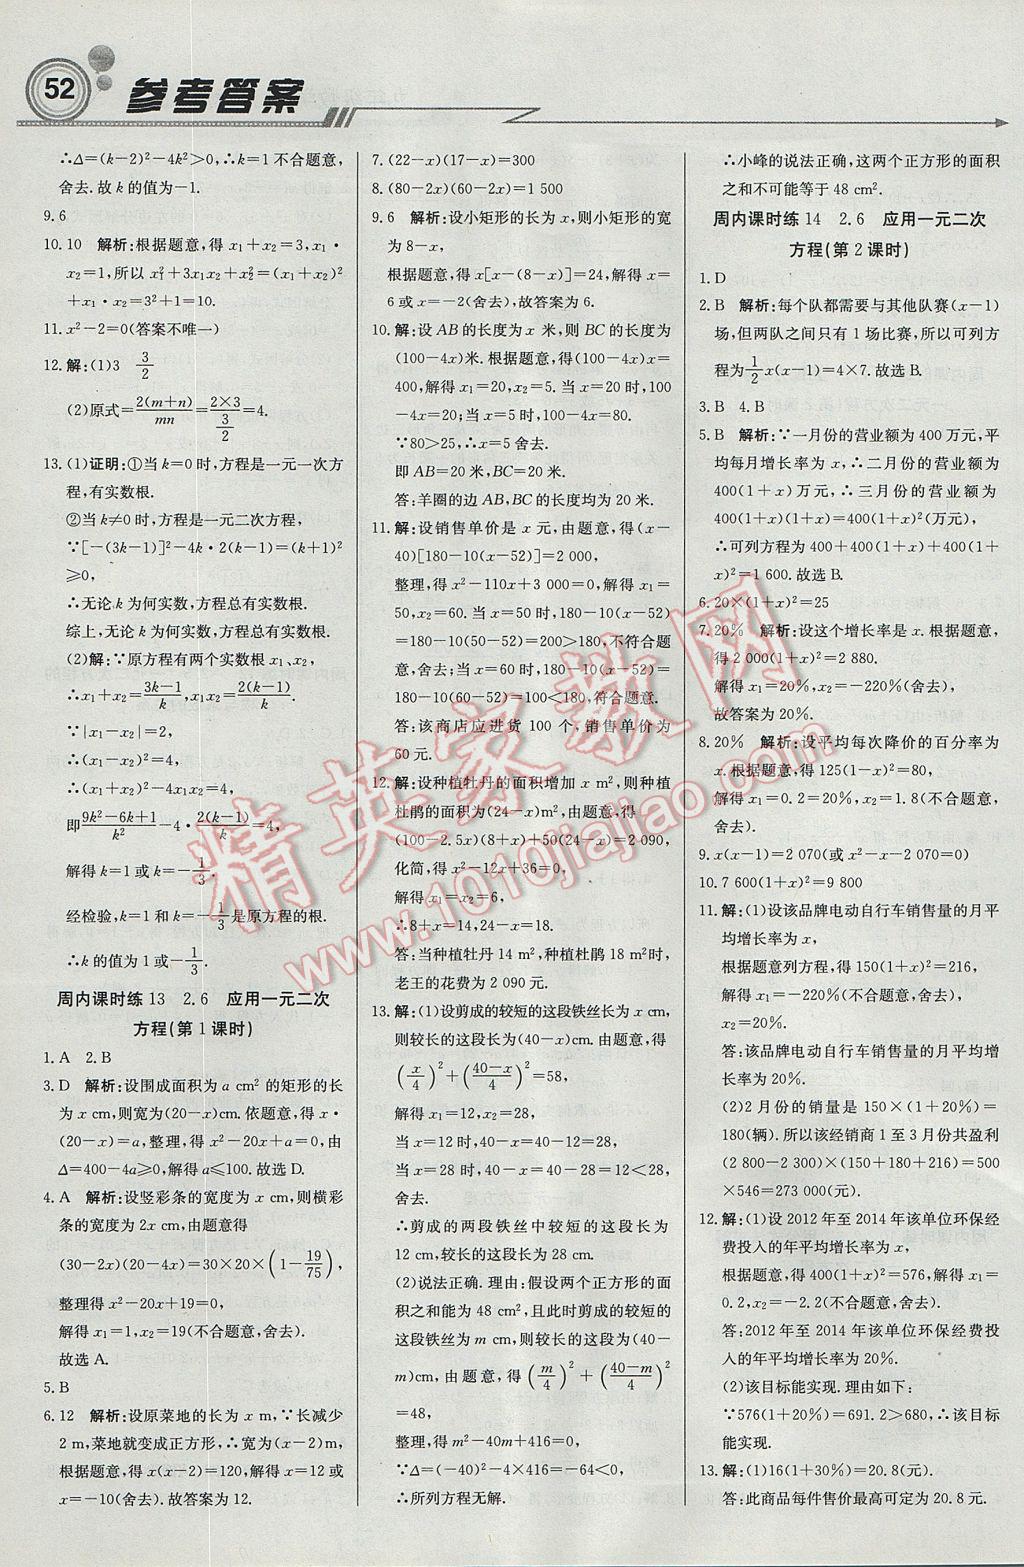 52
参考答案
∴Δ=(k-2)²-4k²>0,∴k=1 不合题意,
舍去.故 k 的值为-1.
9.6
10.10 解析:根据题意,得 x₁+x₂=3,x₁·
x₂=1,所以 x₁²+3x₁x₂+x₂²=(x₁+x₂)²
+x₁·x₂=3²+1=10.
11.x²-2=0(答案不唯一)
12.解:(1)3 3/2
(2)原式=2(m+n)/mn=(2×3)/(3/2)=4.
13.(1)证明:①当 k=0 时,方程是一元一次方
程,有实数根.
②当 k≠0 时,方程是一元二次方程,
∵[-(3k-1)]²-4k·2(k-1)=(k+1)²
≥0,
∴无论 k 为何实数,方程总有实数根.
综上,无论 k 为何实数,方程总有实数根.
(2)解:∵原方程有两个实数根 x₁、x₂,
∴x₁+x₂=(3k-1)/k,x₁x₂=2(k-1)/k.
∵|x₁-x₂|=2,
∴(x₁-x₂)²=4,
∴(x₁+x₂)²-4x₁x₂=4,
即(9k²-6k+1)/k²-4·2(k-1)/k=4,
解得 k=1 或 k=-1/3.
经检验,k=1 和 k=-1/3是原方程的根.
∴k 的值为 1 或-1/3.
周内课时练 13 2.6 应用一元二次
方程(第 1 课时)
1.A 2.B
3.D 解析:设围成面积为 a cm² 的矩形的长
为 x cm,则宽为(20-x)cm.依题意,得 x·
(20-x)=a,整理,得 x²-20x+a=0,由
Δ=400-4a≥0,解得 a≤100.故选 D.
4.A 解析:设竖彩条的宽度为 x cm,则横彩
条的宽度为 2x cm,由题意得
(30-2x)(20-4x)=30×20×(1-19/75),
整理得 x²-20x+19=0,
解得 x₁=1,x₂=19(不合题意,舍去).
故选 A.
5.B
6.12 解析:设原菜地的长为 x m,∵长减少
2 m,菜地就变成正方形,∴宽为(x-2)m,
根据题意,得 x(x-2)=120,解得 x=12 或
x=-10(舍去).故答案为 12.
7.(22-x)(17-x)=300
8.(80-2x)(60-2x)=1 500
9.6 解析:设小矩形的长为 x,则小矩形的宽
为 8-x,
根据题意,得 x[x-(8-x)]=24,解得 x=
6 或 x=-2(舍去),故答案为 6.
10.解:设 AB 的长度为 x 米,则 BC 的长度为
(100-4x)米.根据题意,得(100-4x)x=
400,解得 x₁=20,x₂=5.当 x=20 时,100
-4x=20;当 x=5 时,100-4x=80.
∵80>25,∴x=5 舍去.
即 AB=20 米,BC=20 米.
答:羊圈的边 AB,BC 的长度均为 20 米.
11.解:设销售单价是 x 元,由题意,得(x-
40)[180-10(x-52)]=2 000,
整理,得 x²-110x+3 000=0,解得 x₁=
50,x₂=60.当 x=50 时,180-10(x-52)
=180-10(50-52)=200>180,不符合题
意,舍去;当 x=60 时,180-10(x-52)=
180-10(60-52)=100<180,符合题意.
答:该商店应进货 100 个,销售单价为
60 元.
12.解:设种植牡丹的面积增加 x m²,则种植
杜鹃的面积为(24-x)m²,由题意,得
(100-2.5x)(8+x)+50(24-x)=2 090,
化简,得 x²-12x+36=0,
解得 x₁=x₂=6,
∴8+x=14,24-x=18.
答:当种植牡丹 14 m²,种植杜鹃 18 m² 时,
老王的花费为 2 090 元.
13.解:(1)设剪成的较短的这段铁丝长为 x cm,
则较长的这段长为(40-x)cm.由题意,得
(x/4)²+((40-x)/4)²=58,
解得 x₁=12,x₂=28,
当 x=12 时,40-x=40-12=28,
当 x=28 时,40-x=40-28=12<28,
舍去.
∴剪成的两段铁丝中较短的这段长为
12 cm,较长的这段长为 28 cm.
(2)说法正确.理由:假设两个正方形的面
积之和能为 48 cm²,且此时剪成的较短的
这段铁丝为 m cm,则较长的这段为(40-
m)cm,由题意,得(m/4)²+((40-m)/4)²
=48,
整理,得 m²-40m+416=0,
∵Δ=(-40)²-4×416=-64<0,
∴所列方程无解.
∴小峰的说法正确,这两个正方形的面积
之和不可能等于 48 cm².
周内课时练 14 2.6 应用一元二次
方程(第 2 课时)
1.D
2.B 解析:每个队都需要与其他队赛(x-1)
场,但两队之间只有 1 场比赛,所以可列方
程为1/2x(x-1)=4×7.故选 B.
3.B 4.B
5.B 解析:∵一月份的营业额为 400 万元,平
均每月增长率为 x,∴二月份的营业额为
400(1+x)万元,∴三月份的营业额为
400(1+x)(1+x)=400(1+x)²(万元),
∴可列方程为 400+400(1+x)+400(1+
x)²=1 600.故选 B.
6.20×(1+x)²=25
7.20% 解析:设这个增长率是 x.根据题意,
得 2 000(1+x)²=2 880.
解得 x₁=20%,x₂=-220%(舍去),
故答案为 20%.
8.20% 解析:设平均每次降价的百分率为
x.根据题意,得 125(1-x)²=80,
解得 x₁=0.2=20%,x₂=1.8(不合题意,
舍去).
9.x(x-1)=2 070(或 x²-x-2 070=0)
10.7 600(1+x)²=9 800
11.解:(1)设该品牌电动自行车销售量的月平
均增长率为 x,
根据题意列方程,得 150(1+x)²=216,
解得 x₁=-220%(不合题意,舍去),
x₂=20%.
答:该品牌电动自行车销售量的月平均增
长率为 20%.
(2)2 月份的销量是 150×(1+20%)=
180(辆).所以该经销商 1 至 3 月份共盈利
(2 800-2 300)×(150+180+216)=500
×546=273 000(元).
12.解:(1)设 2012 年至 2014 年该单位环保经
费投入的年平均增长率为 x,
根据题意,得 400(1+x)²=576,解得 x₁=
0.2,x₂=-2.2(不合题意,舍去).
答:2012 年至 2014 年该单位环保经费投
入的年平均增长率为 20%.
(2)该目标能实现.理由如下:
∵576(1+20%)=691.2>680,∴该目标
能实现.
13.解:(1)16(1+30%)=20.8(元).
答:此商品每件售价最高可定为 20.8 元.
精英家教网
www.1010jiajiao.com